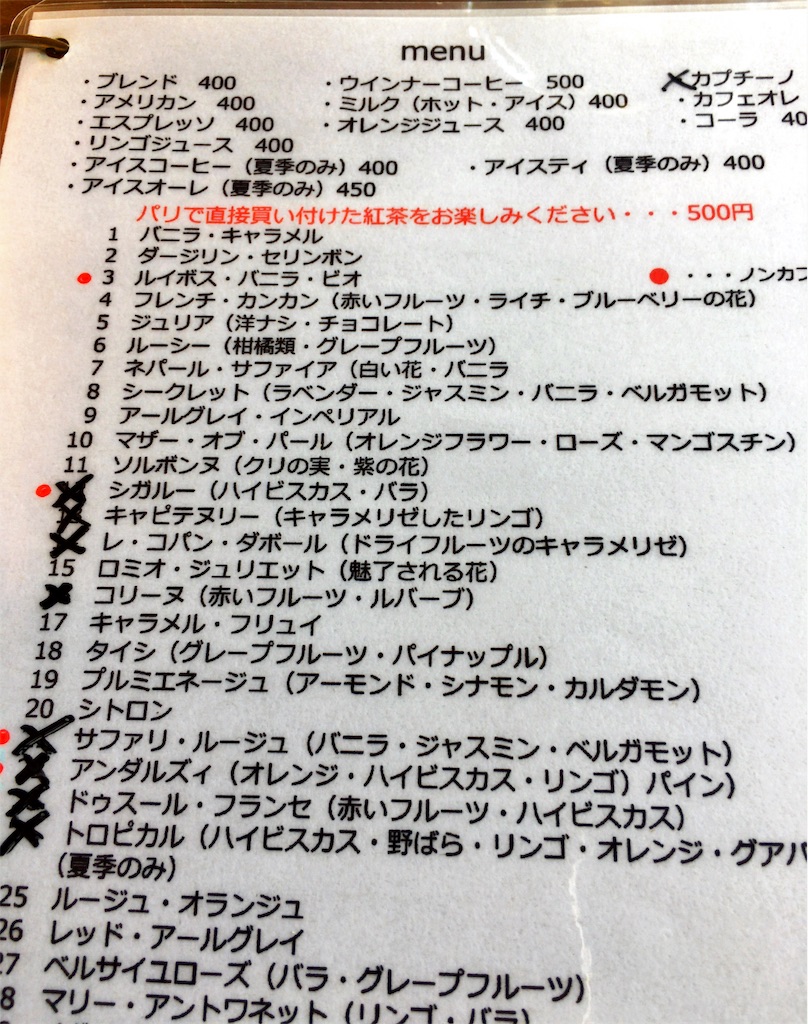 menu
・ブレンド 400 ・ウインナーコーヒー 500 カプチーノ
・アメリカン 400 ・ミルク（ホット・アイス）400 ・カフェオレ
・エスプレッソ 400 ・オレンジジュース 400 ・コーラ 40
・リンゴジュース 400
・アイスコーヒー（夏季のみ）400 ・アイスティ（夏季のみ）400
・アイスオーレ（夏季のみ）450
パリで直接買い付けた紅茶をお楽しみください・・・500円
1 バニラ・キャラメル
2 ダージリン・セリンボン
3 ルイボス・バニラ・ビオ ・・・ノンカフ
4 フレンチ・カンカン（赤いフルーツ・ライチ・ブルーベリーの花）
5 ジュリア（洋ナシ・チョコレート）
6 ルーシー（柑橘類・グレープフルーツ）
7 ネパール・サファイア（白い花・バニラ
8 シークレット（ラベンダー・ジャスミン・バニラ・ベルガモット）
9 アールグレイ・インペリアル
10 マザー・オブ・パール（オレンジフラワー・ローズ・マンゴスチン）
11 ソルボンヌ（クリの実・紫の花）
シガルー（ハイビスカス・バラ）
キャピテヌリー（キャラメリゼしたリンゴ）
レ・コパン・ダボール（ドライフルーツのキャラメリゼ）
15 ロミオ・ジュリエット（魅了される花）
コリーヌ（赤いフルーツ・ルバーブ）
17 キャラメル・フリュイ
18 タイシ（グレープフルーツ・パイナップル）
19 プルミエネージュ（アーモンド・シナモン・カルダモン）
20 シトロン
サファリ・ルージュ（バニラ・ジャスミン・ベルガモット）
アンダルズィ（オレンジ・ハイビスカス・リンゴ）パイン）
ドゥスール・フランセ（赤いフルーツ・ハイビスカス）
トロピカル（ハイビスカス・野ばら・リンゴ・オレンジ・グアバ
（夏季のみ）
25 ルージュ・オランジュ
26 レッド・アールグレイ
27 ベルサイユローズ（バラ・グレープフルーツ）
8 マリー・アントワネット（リンゴ・バラ）